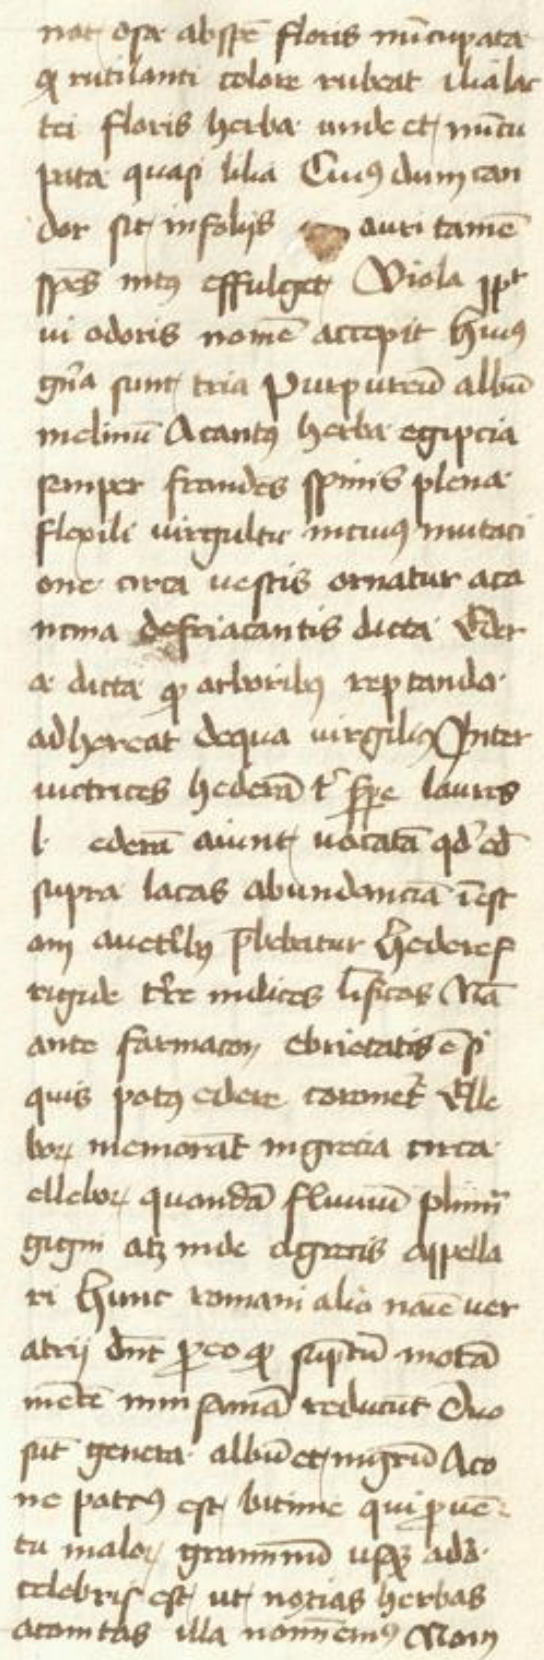 not osa abspē floris nūcupata
qͥ rutilanti colore rubeat ilia lac
tei floris herba unde et nūcu
pata quasi lilia Cuiꝯ dum can
dor sit in folijs auri tamē
spēs intꝯ effulget Viola ꝓpt
ui odoris nomē accepit huiꝯ
gn̄a sunt tria Purpureū albū
melinū Acantꝯ herba egipcia
semper frondes spinis plena
flexili virgultu incuiꝯ mutaci
one circa uestis ornatur aca
ntina defriacantis dicta Eder
a dicta qͥ arboribꝯ reptando
adhereat dequa virgiliꝯ Inter
uictrices hederā t͛ sꝑpe lauros
l ederā aiunt uocatā qd͛ ed
supra lacas abundanciā īest
am auet͛bꝯ p̄bebatur hederes
rigide t͛re indices
ante farmacon ebrietatis ē si
quis potꝯ edere coronet͛ Elle
boꝝ memorāt ingrecia circa
elleboꝝ quondā fluuiū plurim̄
gigni atqꝫ inde agrecis appella
ri hunc romani alio noīe uer
atrij dn̄t ꝑeo qͥ sūptū motā
mētē inin sanā reducūt Duo
sūt genera albū et nigrū Aco
ne portꝯ est bitinie qui ꝓuē
tu maloꝝ graminū usqꝫ adā
celebris est ut noxias herbas
aconitas illa nominemꝯ Nam